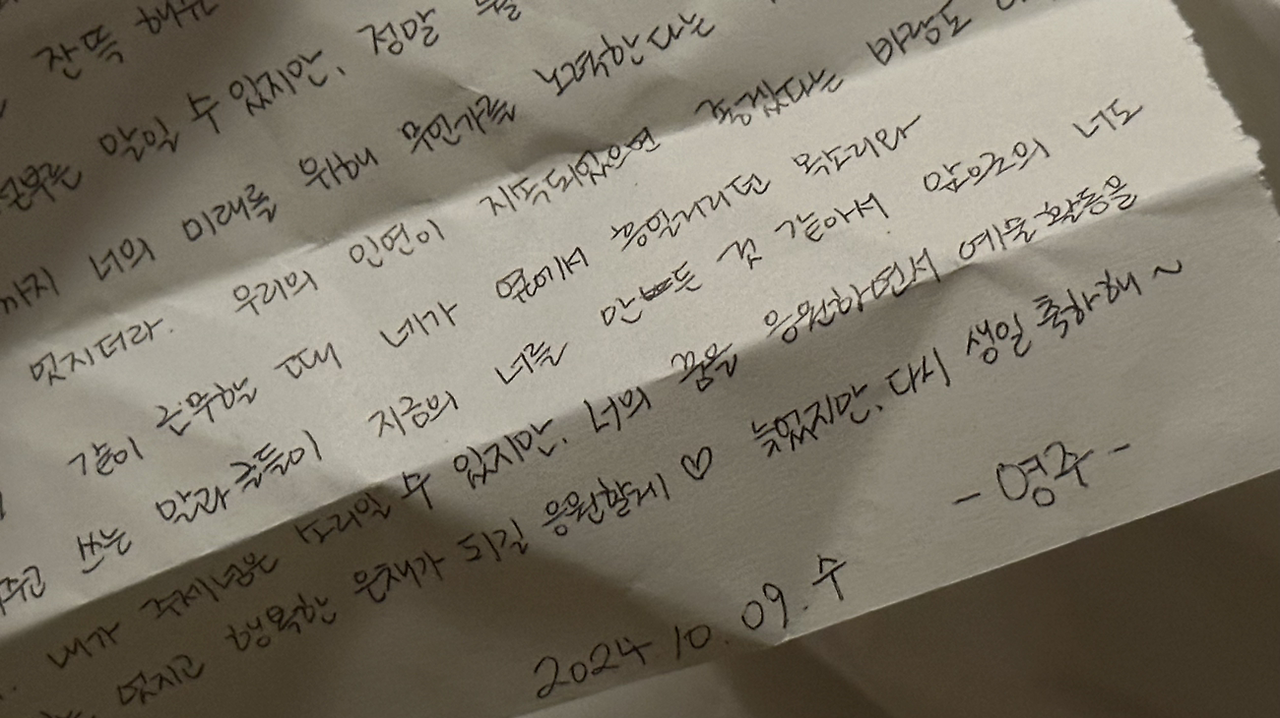 잔뜩 해주
말일 수 있지만, 정말
까지 너의 미래를 위해 무언가를 노력한다는
멋지더라. 우리의 인연이 지속되었으면 좋겠다는 바람도
같이 근무할 때 네가 옆에서 흥얼거리던 목소리와
쓰는 말과 글들이 지금의 너를 만든 것 같아서 앞으로의 너도
내가 주제넘은 소리일 수 있지만, 너의 꿈을 응원하면서 예술활동을
멋지고 행복한 은채가 되길 응원할게 ♡ 늦었지만, 다시 생일 축하해 ~
- 영주 -
2024 10. 09. 수